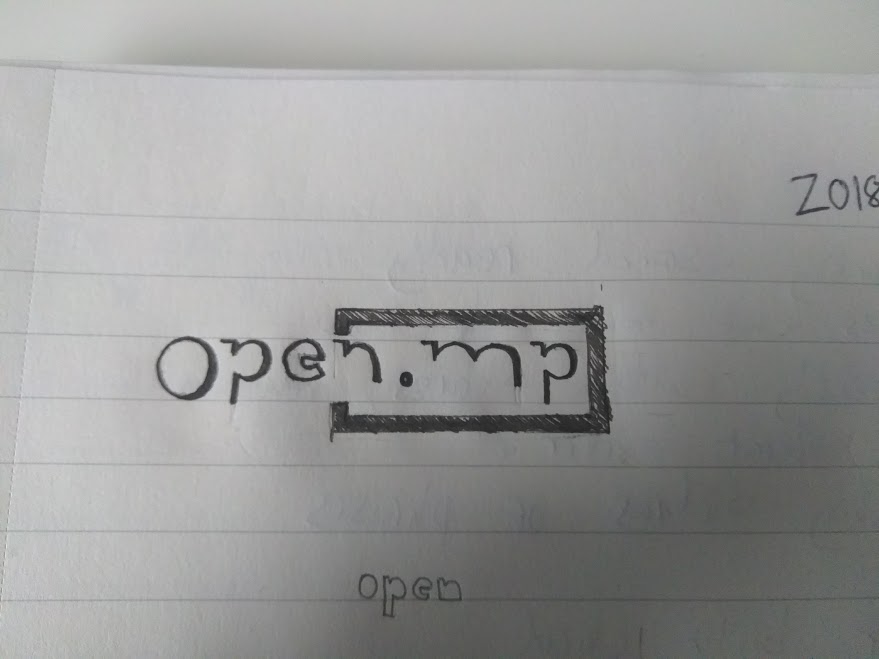 2018
open.mp
open